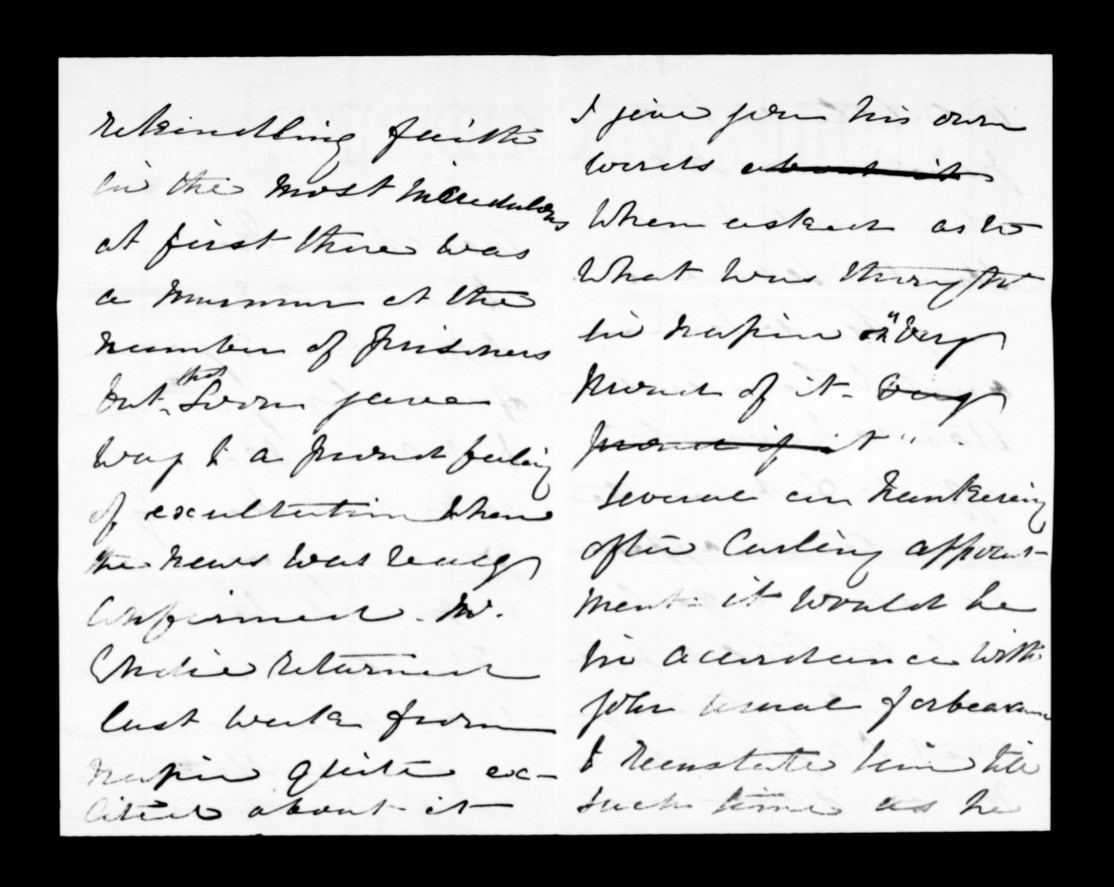 rekindling faith
in the most incredulous
at first there was
a murmur at the
number of prisoners
but that soon gave
way to a proud feeling
of exultation when
the news was really
confirmed. Mr.
returned
last week from
Napier quite ex-
cited about it
I give you his own
words about it
When asked as to
what was thought
in Napier "Very
proud of it. Very
proud of it".
Several are hankering
after Curling appoint-
ment. it would be
in accordance with
your usual forbearance
to reinstate him till
such time as he